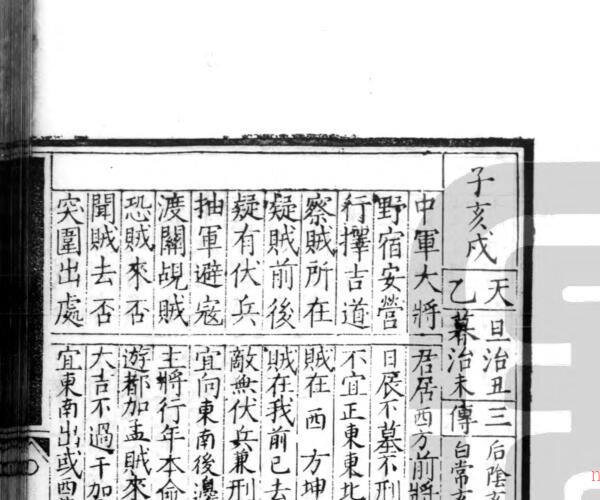 子亥戌
天乙
旦治丑
暮治未
三傳
后陰
白常
中軍大將
君居西方前將
野宿安營
日辰不墓不刑
行擇吉道
不宜正東東北
察賊所在
賊在西方坤
疑賊前後
賊在我前已去
疑有伏兵
敵無伏兵兼刑
抽軍避寇
宜向東南後邊
渡關覘賊
主將行年本命
恐賊來否
遊都加孟賊來
聞賊去否
大吉不過干加
突圍出處
宜東南出或西